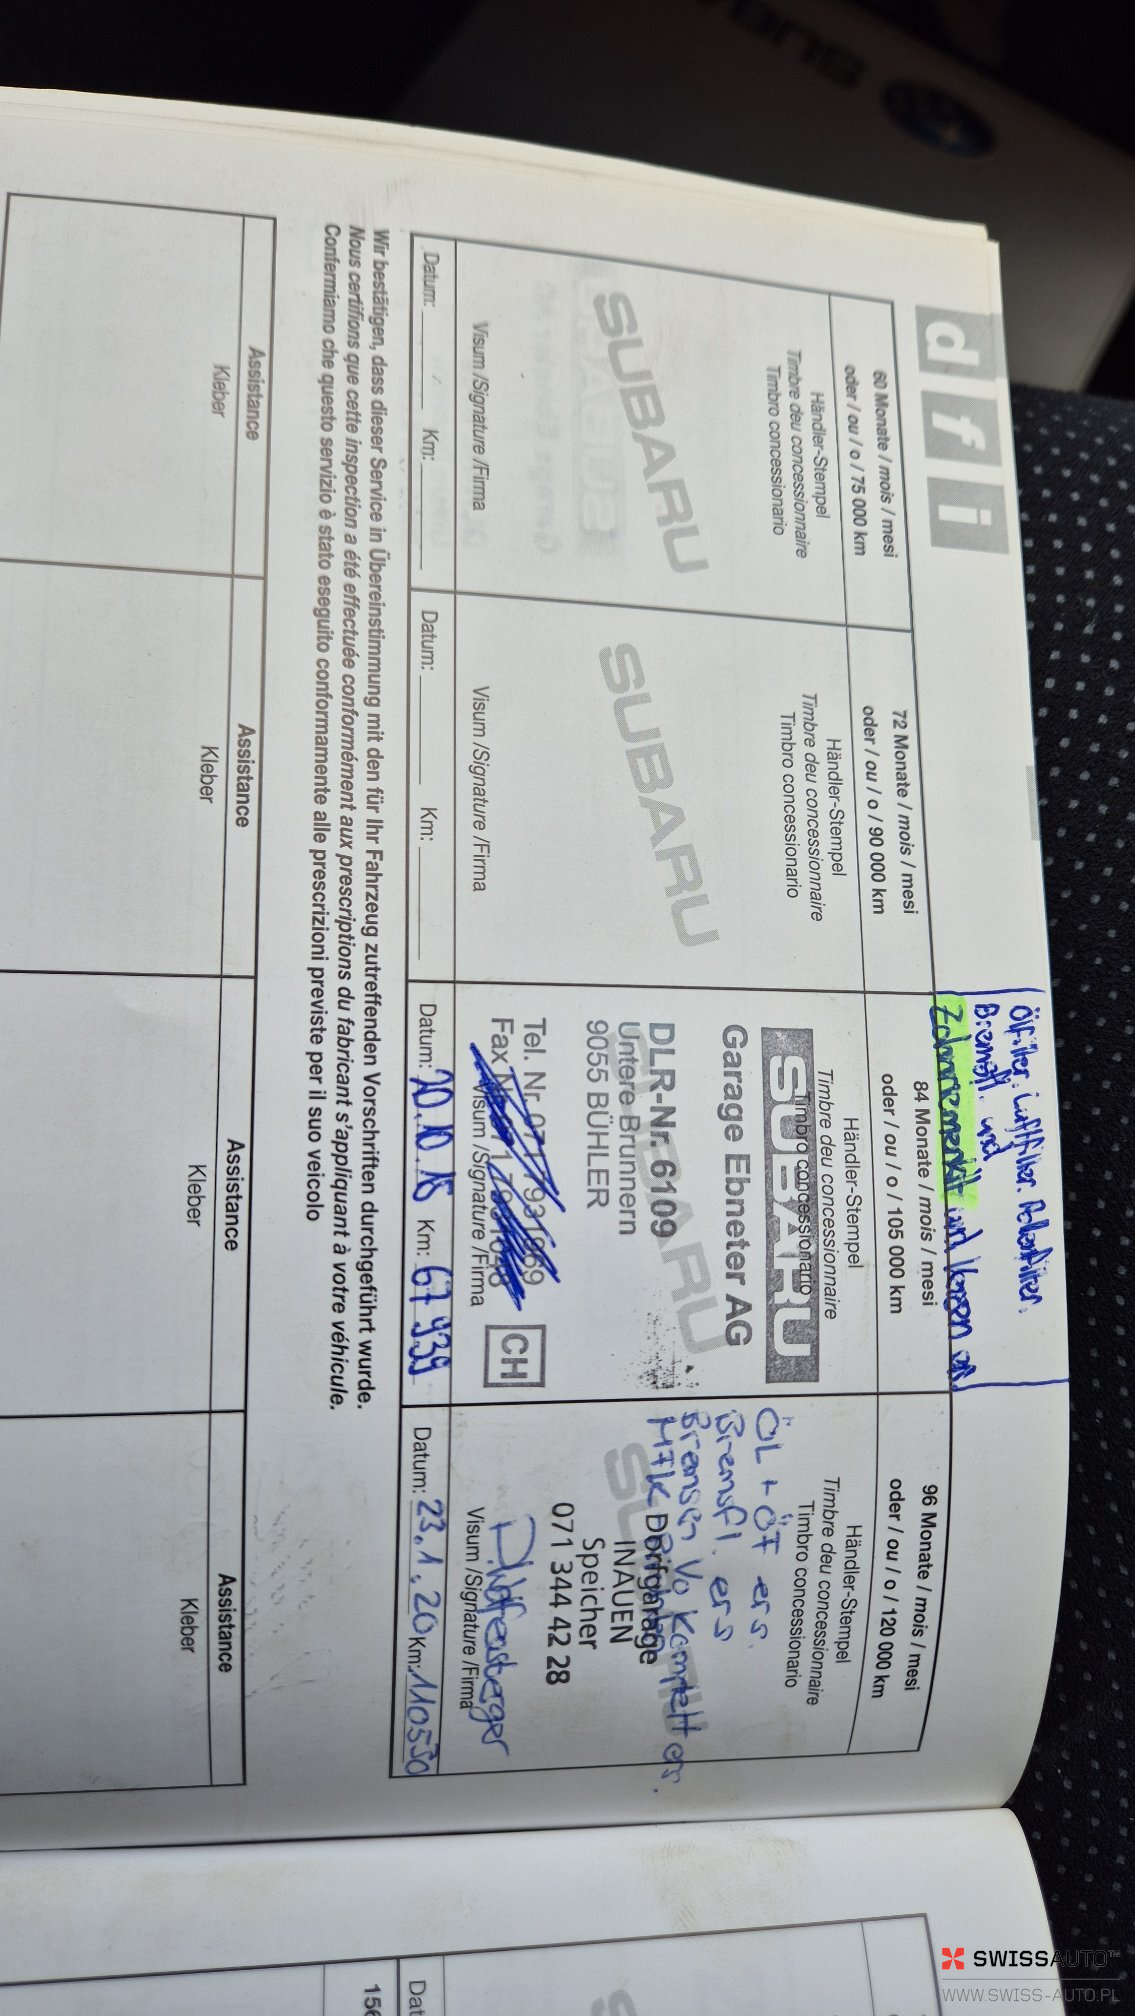 SUBARU
d f i
Ölfilter. Luftfilter. Pollenfilter.
Bremsfl. und
Zahnriemenkit und Kerzen ers.
60 Monate / mois / mesi
oder / ou / o / 75 000 km
Händler-Stempel
Timbre deu concessionnaire
Timbro concessionario
SUBARU
Visum /Signature /Firma
Datum: Km:
72 Monate / mois / mesi
oder / ou / o / 90 000 km
Händler-Stempel
Timbre deu concessionnaire
Timbro concessionario
SUBARU
Visum /Signature /Firma
Datum: Km:
84 Monate / mois / mesi
oder / ou / o / 105 000 km
Händler-Stempel
Timbre deu concessionnaire
Timbro concessionario
SUBARU
Garage Ebneter AG
SUBARU
DLR-Nr. 6109
Untere Brunnern
9055 BÜHLER
Tel. Nr. 071 793 1969
Fax Nr.
CH
Visum /Signature /Firma
Datum: 20.10.16 Km: 67 939
96 Monate / mois / mesi
oder / ou / o / 120 000 km
Händler-Stempel
Timbre deu concessionnaire
Timbro concessionario
ÖL + ÖF ers.
Bremsfl. ers
Bremsen Vo Komplett ers.
MFK
SUBARU
Dorfgarage
INAUEN
Speicher
071 344 42 28
Visum /Signature /Firma
Datum: 23.1.20 Km: 110530
Wir bestätigen, dass dieser Service in Übereinstimmung mit den für Ihr Fahrzeug zutreffenden Vorschriften durchgeführt wurde.
Nous certifions que cette inspection a été effectuée conformément aux prescriptions du fabricant s'appliquant à votre véhicule.
Confermiamo che questo servizio è stato eseguito conformamente alle prescrizioni previste per il suo veicolo
Assistance
Kleber
Assistance
Kleber
Assistance
Kleber
Assistance
Kleber
SU
Dat
156
SWISSAUTO™
WWW.SWISS-AUTO.PL